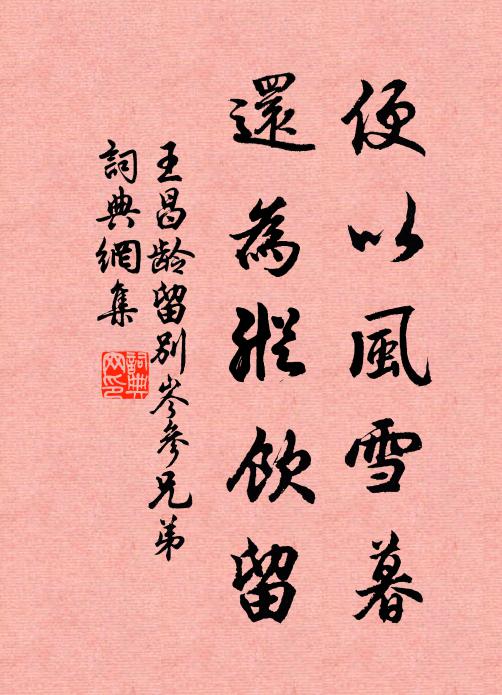 便以風雪暮
還為縱飲留
王昌齡留別岑參兄弟
詞典網集
詞典網印